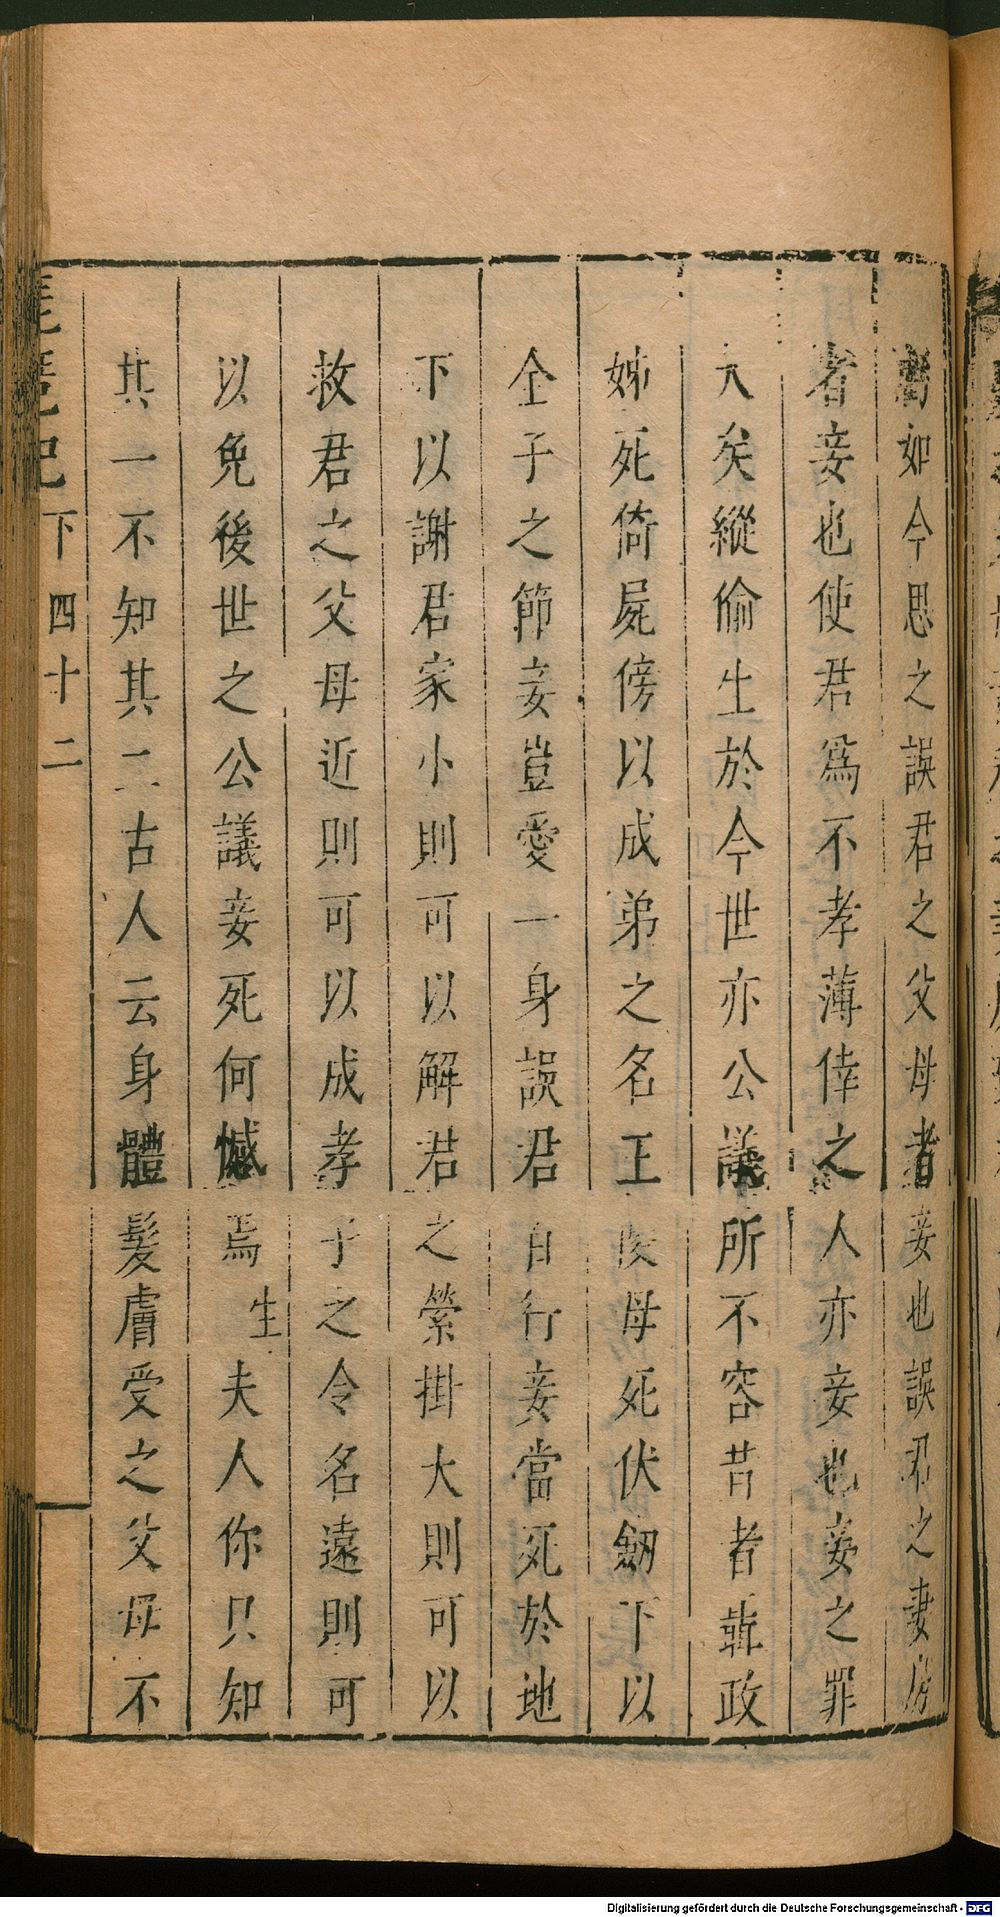 如今思之誤君之父母者妾也誤君之妻房
者妾也使君爲不孝薄倖之人亦妾也妾之罪
大矣縱偷生於今世亦公議所不容昔者聶政
姊死倚屍傍以成弟之名王陵母死伏劒下以
全子之節妾豈愛一身誤君百行妾當死於地
下以謝君家小則可以解君之縈掛大則可以
救君之父母近則可以成孝子之令名遠則可
以免後世之公議妾死何憾焉 生 夫人你只知
其一不知其二古人云身體髮膚受之父母不
琵琶記 下 四十二
Digitalisierung gefördert durch die Deutsche Forschungsgemeinschaft - DFG